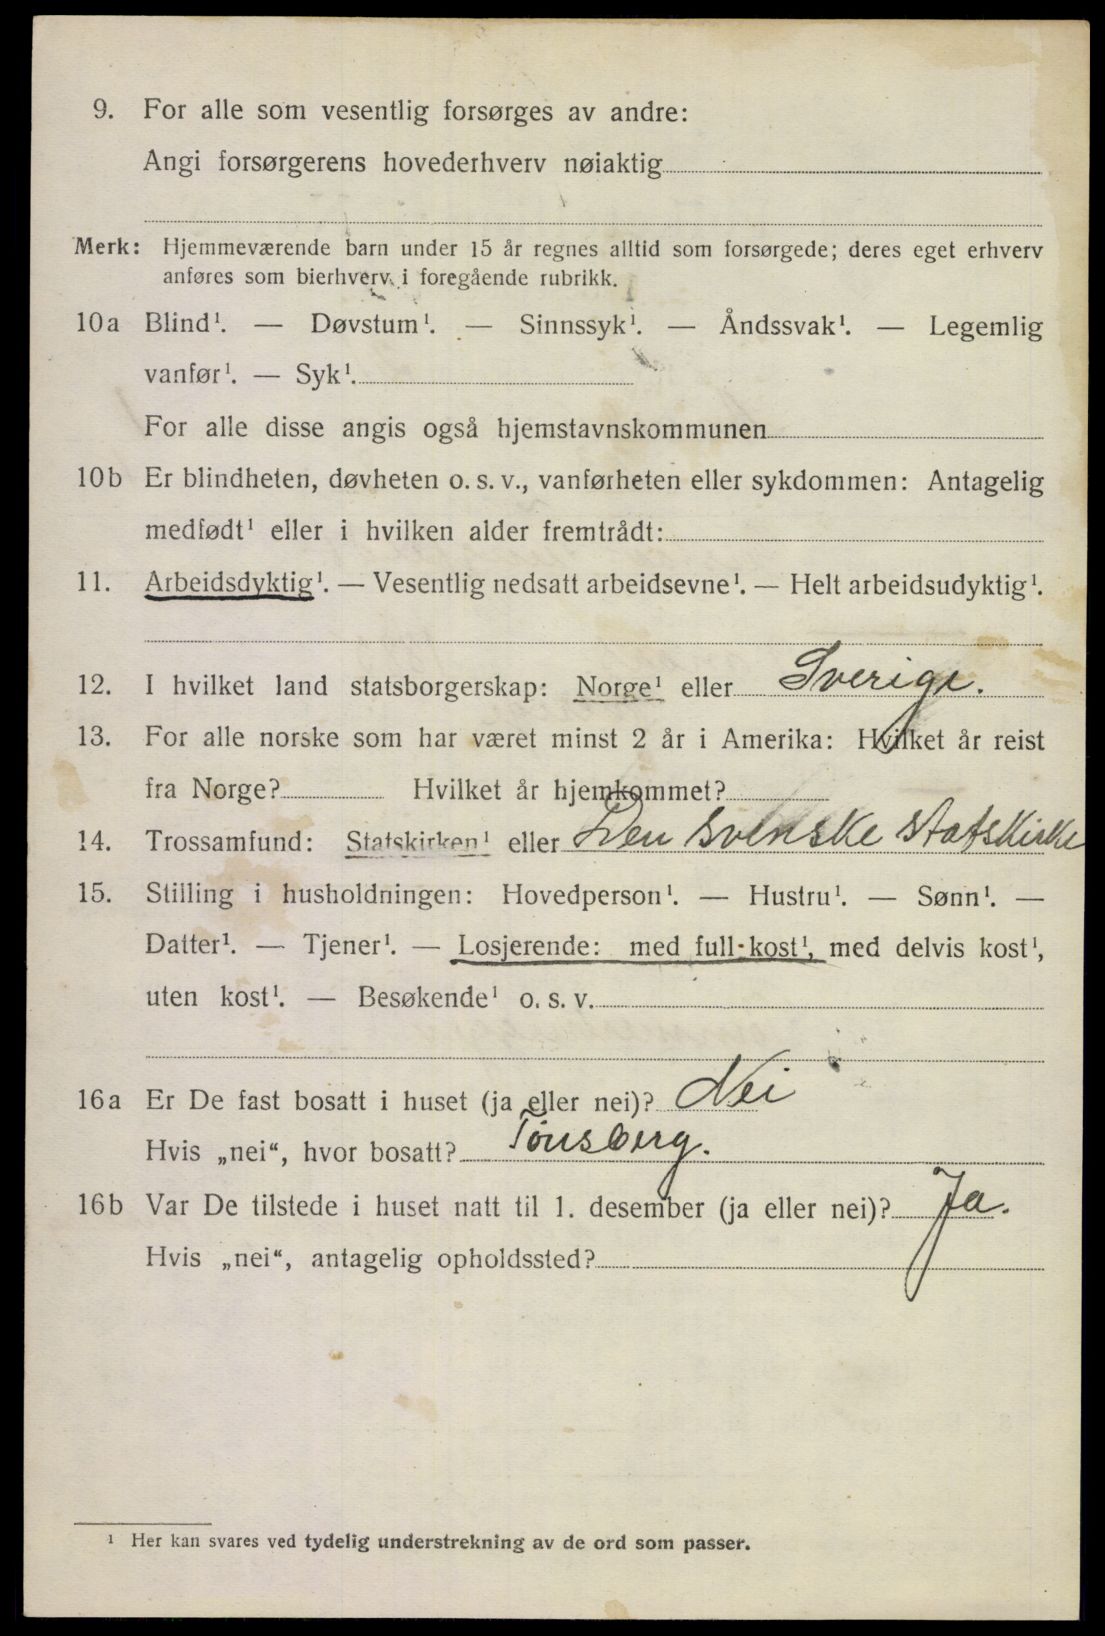 9. For alle som vesentlig forsørges av andre:
Angi forsørgerens hovederhverv nøiaktig
Merk: Hjemmeværende barn under 15 år regnes alltid som forsørgede; deres eget erhverv
anføres som bierhverv i foregående rubrikk.
10a Blind¹. — Døvstum¹. — Sinnssyk¹. — Åndssvak¹. — Legemlig
vanfør¹. — Syk¹.
For alle disse angis også hjemstavnskommunen
10b Er blindheten, døvheten o. s. v., vanførheten eller sykdommen: Antagelig
medfødt¹ eller i hvilken alder fremtrådt:
11. Arbeidsdyktig¹. — Vesentlig nedsatt arbeidsevne¹. — Helt arbeidsudyktig¹.
12. I hvilket land statsborgerskap: Norge¹ eller Sverige.
13. For alle norske som har været minst 2 år i Amerika: Hvilket år reist
fra Norge? Hvilket år hjemkommet?
14. Trossamfund: Statskirken¹ eller Den svenske statskirke
15. Stilling i husholdningen: Hovedperson¹. — Hustru¹. — Sønn¹. —
Datter¹. — Tjener¹. — Losjerende: med full kost¹, med delvis kost¹,
uten kost¹. — Besøkende¹ o. s. v.
16a Er De fast bosatt i huset (ja eller nei)? Nei
Hvis „nei“, hvor bosatt? Tønsberg.
16b Var De tilstede i huset natt til 1. desember (ja eller nei)? Ja.
Hvis „nei“, antagelig opholdssted?
¹ Her kan svares ved tydelig understrekning av de ord som passer.